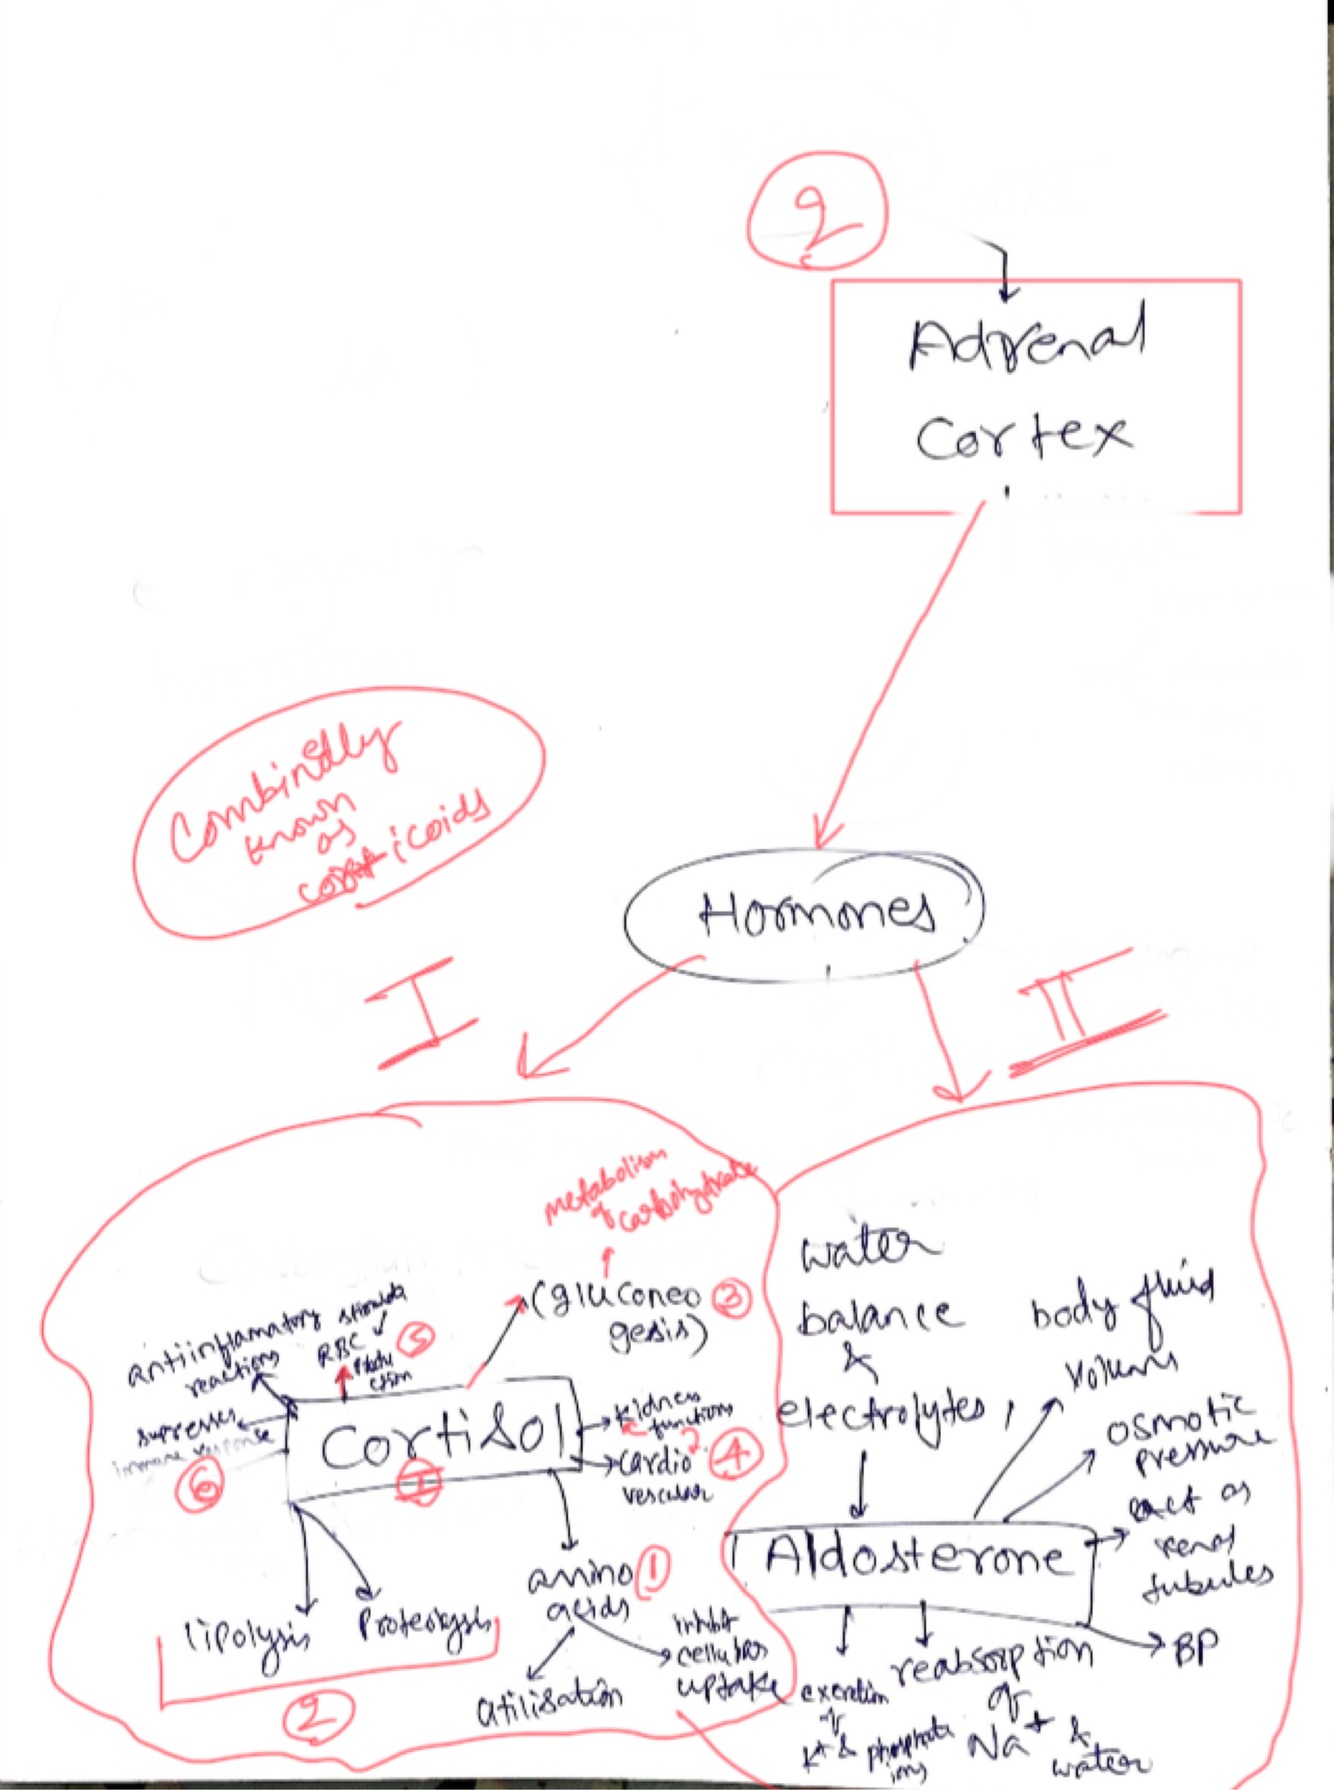 2
Adrenal
Cortex
Combinedlly
known
as
corticoids
Hormones
I
II
metabolism
of carbohydrate
(gluconeo 3
gesis)
antiinflamatory
reactions
stimulate
RBC 5
Produ
ction
supresses
immune response
6
Cortisol
I
kidness
functions
cardio 4
vescular
amino 1
acids
lipolysis
Proteolysis
2
utilisation
inhibit
cellular
uptake
water
balance
&
electrolytes,
body fluid
volums
osmotic
pressure
act as
renal
tubules
Aldosterone
BP
excretion
of
K+ & phosphate
ions
reabsorption
of
Na+ &
water